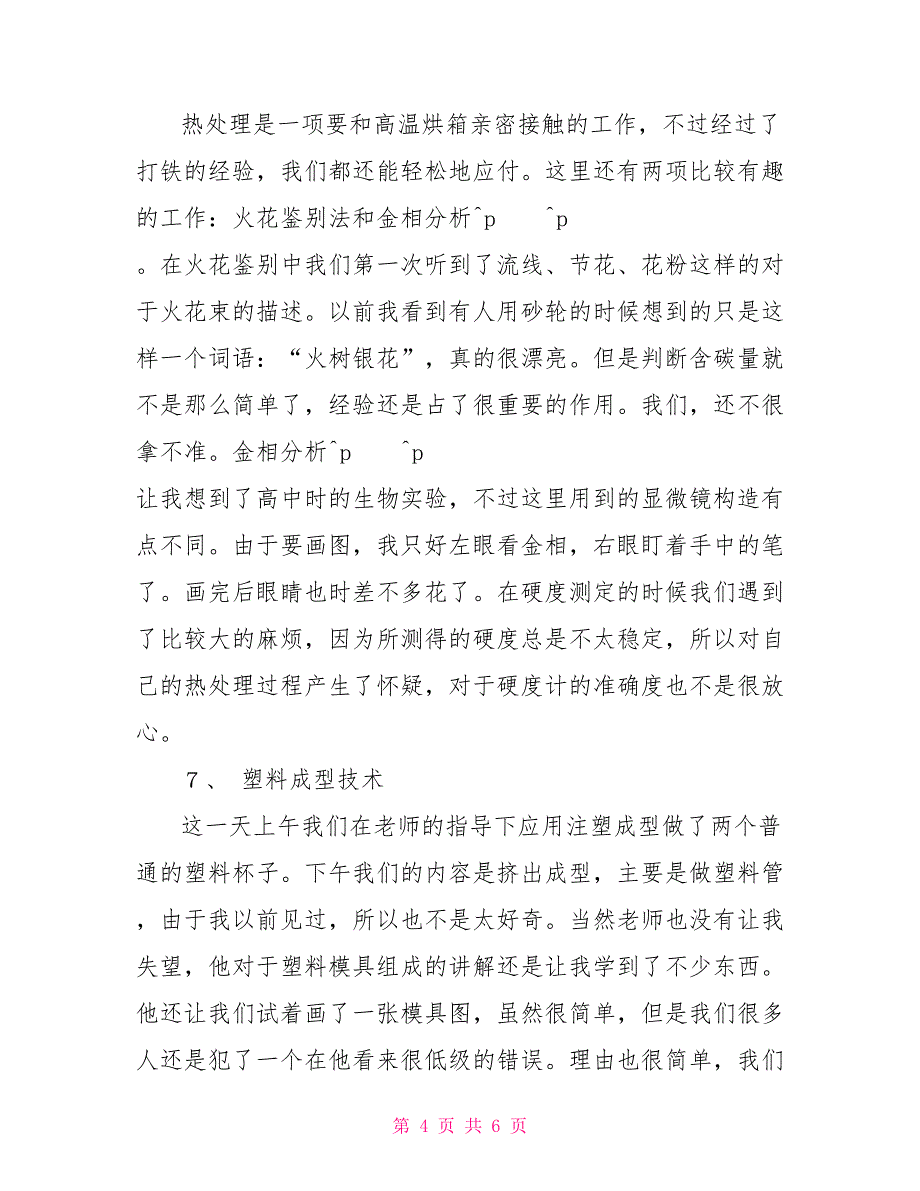 热处理是一项要和高温烘箱亲密接触的工作，不过经过了
打铁的经验，我们都还能轻松地应付。这里还有两项比较有趣
的工作：火花鉴别法和金相分析^p    ^p
。在火花鉴别中我们第一次听到了流线、节花、花粉这样的对
于火花束的描述。以前我看到有人用砂轮的时候想到的只是这
样一个词语：“火树银花”，真的很漂亮。但是判断含碳量就
不是那么简单了，经验还是占了很重要的作用。我们，还不很
拿不准。金相分析^p    ^p
让我想到了高中时的生物实验，不过这里用到的显微镜构造有
点不同。由于要画图，我只好左眼看金相，右眼盯着手中的笔
了。画完后眼睛也时差不多花了。在硬度测定的时候我们遇到
了比较大的麻烦，因为所测得的硬度总是不太稳定，所以对自
己的热处理过程产生了怀疑，对于硬度计的准确度也不是很放
心。
７、 塑料成型技术
这一天上午我们在老师的指导下应用注塑成型做了两个普
通的塑料杯子。下午我们的内容是挤出成型，主要是做塑料管
，由于我以前见过，所以也不是太好奇。当然老师也没有让我
失望，他对于塑料模具组成的讲解还是让我学到了不少东西。
他还让我们试着画了一张模具图，虽然很简单，但是我们很多
人还是犯了一个在他看来很低级的错误。理由也很简单，我们
第 4 页 共 6 页